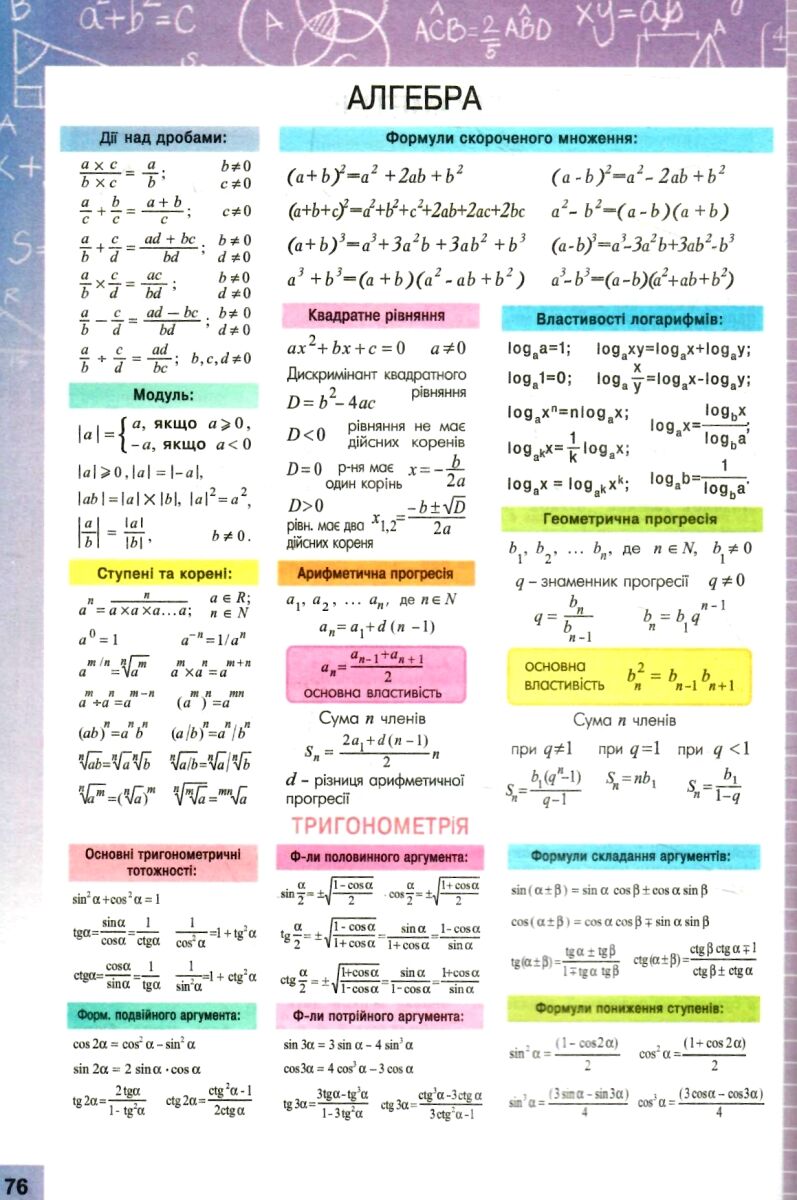 a²+b²=c
A
C
AĈB=2/5 AB̂D
xy=ab
АЛГЕБРА
Дії над дробами:
a x c / b x c = a / b ; b≠0 c≠0
a/c + b/c = a + b / c ; c≠0
a/b + c/d = ad + bc / bd ; b≠0 d≠0
a/b × c/d = ac / bd , b≠0 d≠0
a/b − c/d = ad — bc / bd , b≠0 d≠0
a/b ÷ c/d = ad / bc ; b,c,d≠0
Модуль:
|a| = { a, якщо a⩾0,
−a, якщо a<0
|a|⩾0, |a| = |-a|,
|ab|=|a|X|b|, |a|²=a²,
|a/b| = |a| / |b| , b≠0.
Ступені та корені:
aⁿ = a x a x a...a; (n) a∈R; n∈N
a⁰ = 1 a⁻ⁿ = 1/aⁿ
a^(m/n) = ⁿ√a^m a^m x a^n = a^(m+n)
a^m ÷ a^n = a^(m−n) (a^m)^n = a^(mn)
(ab)ⁿ = aⁿbⁿ (a/b)ⁿ = aⁿ/bⁿ
ⁿ√ab = ⁿ√a ⁿ√b ⁿ√a/b = ⁿ√a / ⁿ√b
ⁿ√a^m = (ⁿ√a)^m
Формули скороченого множення:
(a+b)²=a²+2ab+b² (a-b)²=a²-2ab+b²
(a+b+c)²=a²+b²+c²+2ab+2ac+2bc a²-b²=(a-b)(a+b)
(a+b)³=a³+3a²b+3ab²+b³ (a-b)³=a³-3a²b+3ab²-b³
a³+b³=(a+b)(a²-ab+b²) a³-b³=(a-b)(a²+ab+b²)
Квадратне рівняння
ax²+bx+c=0 a≠0
Дискримінант квадратного
рівняння
D=b²-4ac
D<0 рівняння не має
дійсних коренів
D=0 р-ня має один корінь x = − b / 2a
D>0 рівн. має два дійсних кореня x₁,₂ = -b±√D / 2a
Арифметична прогресія
a₁, a₂, ... aₙ, де n∈N
aₙ=a₁+d(n -1)
aₙ = aₙ₋₁+aₙ₊₁ / 2
основна властивість
Сума n членів
Sₙ = 2a₁+d(n-1) / 2 n
d – різниця арифметичної
прогресії
Властивості логарифмів:
logₐa=1; logₐxy=logₐx+logₐy;
logₐ1=0; logₐ x/y =logₐx-logₐy;
logₐxⁿ=nlogₐx; logₐx= log_b x / log_b a ;
log_(a^k) x= 1/k logₐx;
logₐx = log_(a^k) x^k; logₐb= 1 / log_b a .
Геометрична прогресія
b₁, b₂, ... bₙ, де n∈N, b₁≠0
q – знаменник прогресії q≠0
q = bₙ / bₙ₋₁ bₙ = b₁qⁿ⁻¹
основна
властивість bₙ² = bₙ₋₁ bₙ₊₁
Сума n членів
при q≠1 при q=1 при q <1
Sₙ = b₁(qⁿ-1) / q-1 Sₙ = nb₁ Sₙ = b₁ / 1-q
ТРИГОНОМЕТРІЯ
Основні тригонометричні
тотожності:
sin²α+cos²α = 1
tgα= sinα / cosα = 1 / ctgα 1 / cos²α =1+tg²α
ctgα= cosα / sinα = 1 / tgα 1 / sin²α =1 + ctg²α
Форм. подвійного аргумента:
cos 2α = cos²α - sin²α
sin 2α = 2 sinα · cosα
tg2α= 2tgα / 1- tg²α ctg2α= ctg²α-1 / 2ctgα
Ф-ли половинного аргумента:
sin α/2 = ±√(1-cosα / 2) cos α/2 = ±√(1+cosα / 2)
tg α/2 = ±√(1-cosα / 1+cosα) = sinα / 1+cosα = 1-cosα / sinα
ctg α/2 = ±√(1+cosα / 1-cosα) = sinα / 1-cosα = 1+cosα / sinα
Ф-ли потрійного аргумента:
sin 3α = 3 sin α - 4 sin³α
cos3α = 4 cos³α - 3 cos α
tg3α= 3tgα-tg³α / 1-3tg²α ctg3α= ctg³α-3ctgα / 3ctg²α-1
Формули складання аргументів:
sin(α±β) = sin α cosβ ± cosα sinβ
cos(α±β) = cosα cosβ ∓ sinα sinβ
tg(α±β)= tgα ± tgβ / 1∓tgα tgβ ctg(α±β)= ctgβ ctgα∓1 / ctgβ± ctgα
Формули пониження ступенів:
sin²α = (1-cos2α) / 2 cos²α = (1+cos2α) / 2
sin³α = (3sinα - sin3α) / 4 cos³α = (3cosα - cos3α) / 4
76